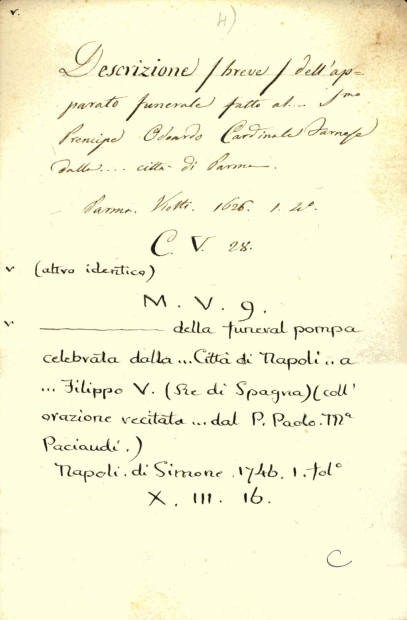 4)
v.
Descrizione / breve / dell'ap=
parato funerale fatto al... Smo
Prencipe Odoardo Cardinale Farnese
dalla.... città di Parma.
Parma. Viotti. 1626. 1. 4°.
C. V. 28.
v (altro identico)
M. V. 9.
v ———— della funeral pompa
celebrata dalla ... Città di Napoli .. a
... Filippo V. (Re di Spagna) (coll'
orazione recitata ... dal P. Paolo. Mª
Paciaudi.)
Napoli. di Simone. 1746. 1. fol°
X. III. 16.
C